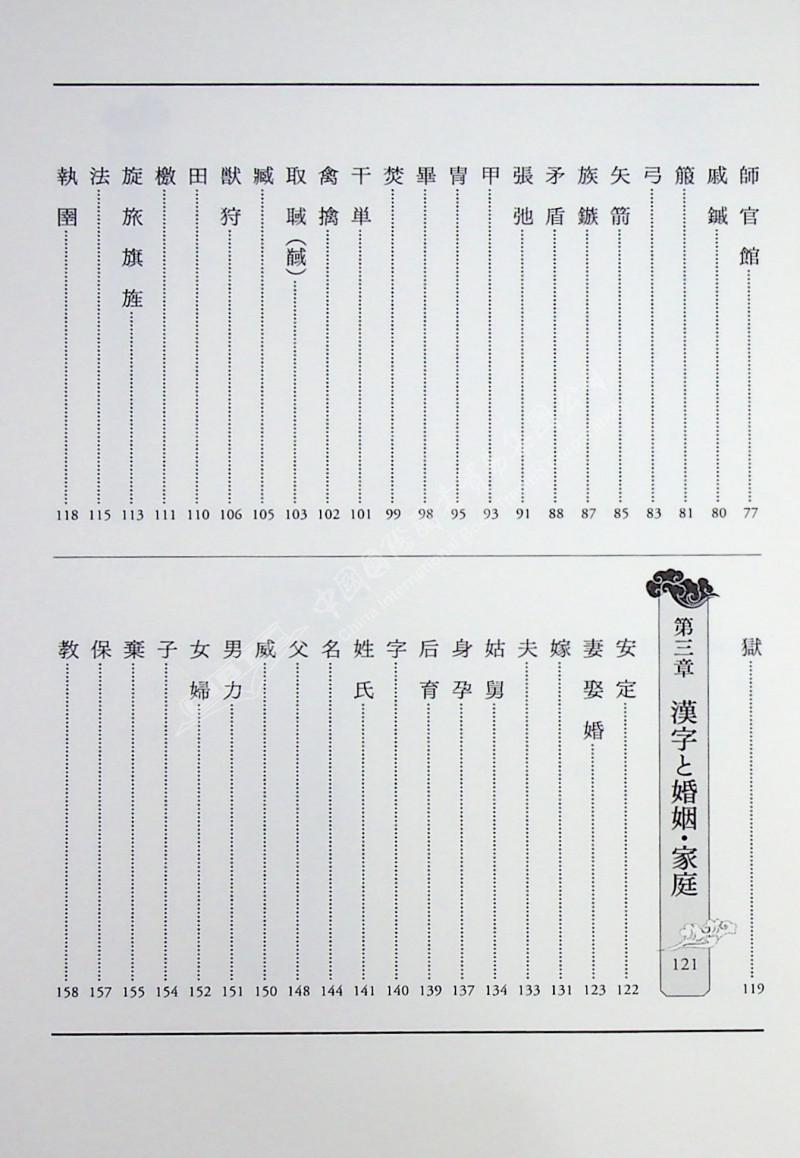 師 官 館 77
戚 鏚 80
箙 81
弓 83
矢 箭 85
族 鏃 87
矛 盾 88
張 弛 91
甲 93
冑 95
畢 98
焚 99
干 単 101
禽 擒 102
取 聝(馘) 103
臧 105
獣 狩 106
田 110
檄 111
旋 旅 旗 旌 113
法 115
執 圉 118
獄 119
第三章 漢字と婚姻・家庭 121
安 定 122
妻 娶 婚 123
嫁 131
夫 133
姑 舅 134
身 孕 137
后 育 139
字 140
姓 氏 141
名 144
父 148
威 150
男 力 151
女 婦 152
子 154
棄 155
保 157
教 158
中国国际图书贸易集团公司
China International Book Trading Corporation